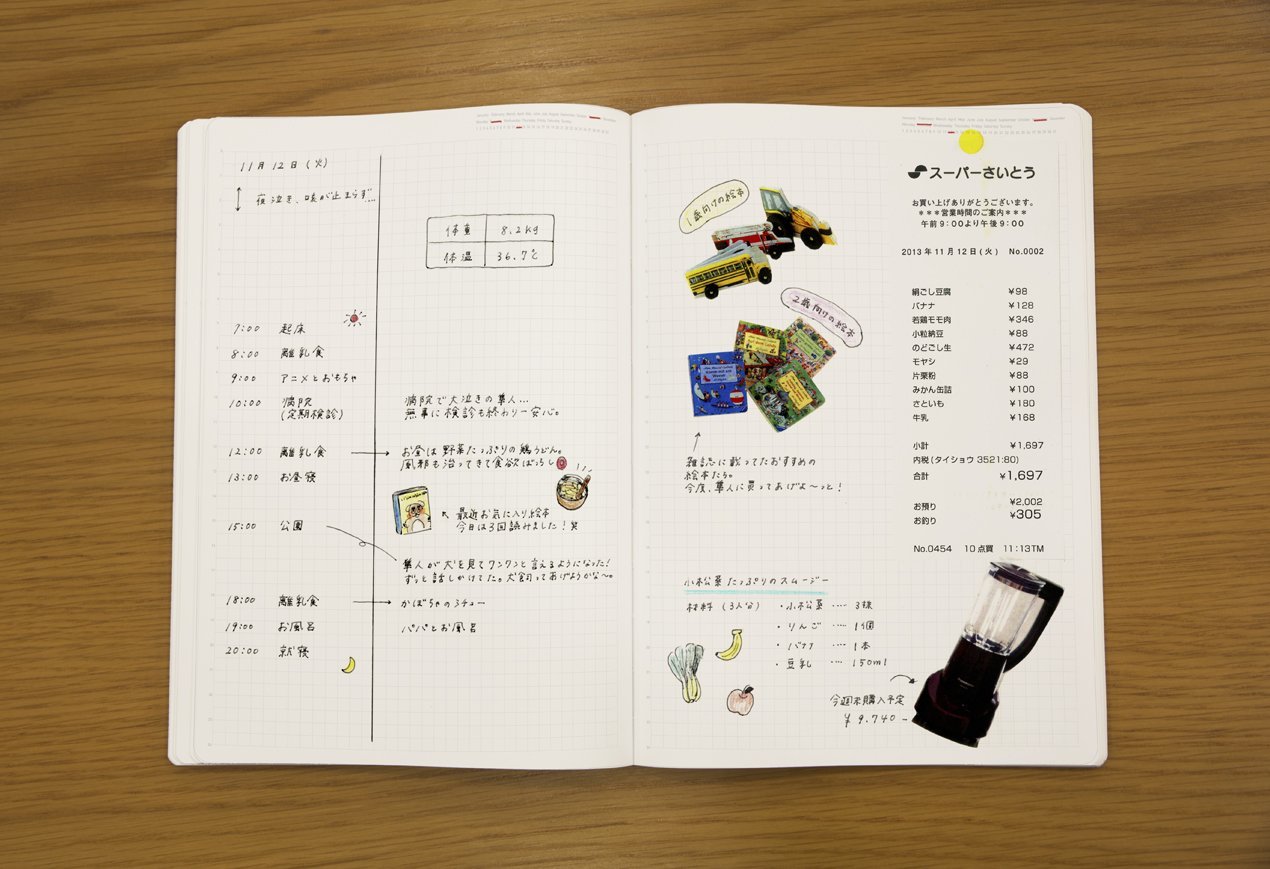 11月12日(火)
夜泣き、咳が止まらず…
体重 8.2kg
体温 36.7℃
7:00 起床
8:00 離乳食
9:00 アニメとおもちゃ
10:00 病院
(定期検診)
病院で大泣きの隼人…
無事に検診も終わり一安心。
12:00 離乳食
お昼は野菜たっぷりの鶏うどん。
風邪も治ってきて食欲ばっちし
13:00 お昼寝
最近お気に入り絵本
今日は3回読みました!笑
15:00 公園
隼人が犬を見てワンワンと言えるようになった!
ずっと話しかけてた。犬飼ってあげようかな〜。
18:00 離乳食
かぼちゃのシチュー
19:00 お風呂
パパとお風呂
20:00 就寝
1歳向けの絵本
2歳向けの絵本
雑誌に載ってたおすすめの
絵本たち。
今度、隼人に買ってあげよ〜っと!
小松菜たっぷりのスムージー
材料(3人分)
・小松菜 ···· 3株
・りんご ···· 1個
・バナナ ···· 1本
・豆乳 ···· 150ml
今週末購入予定
¥9,740−
スーパーさいとう
お買い上げありがとうございます。
***営業時間のご案内***
午前9:00より午後9:00
2013年11月12日(火) No.0002
絹ごし豆腐 ¥98
バナナ ¥128
若鶏モモ肉 ¥346
小粒納豆 ¥88
のどごし生 ¥472
モヤシ ¥29
片栗粉 ¥88
みかん缶詰 ¥100
さといも ¥180
牛乳 ¥168
小計 ¥1,697
内税(タイショウ 3521:80)
合計 ¥1,697
お預り ¥2,002
お釣り ¥305
No.0454 10点買 11:13TM